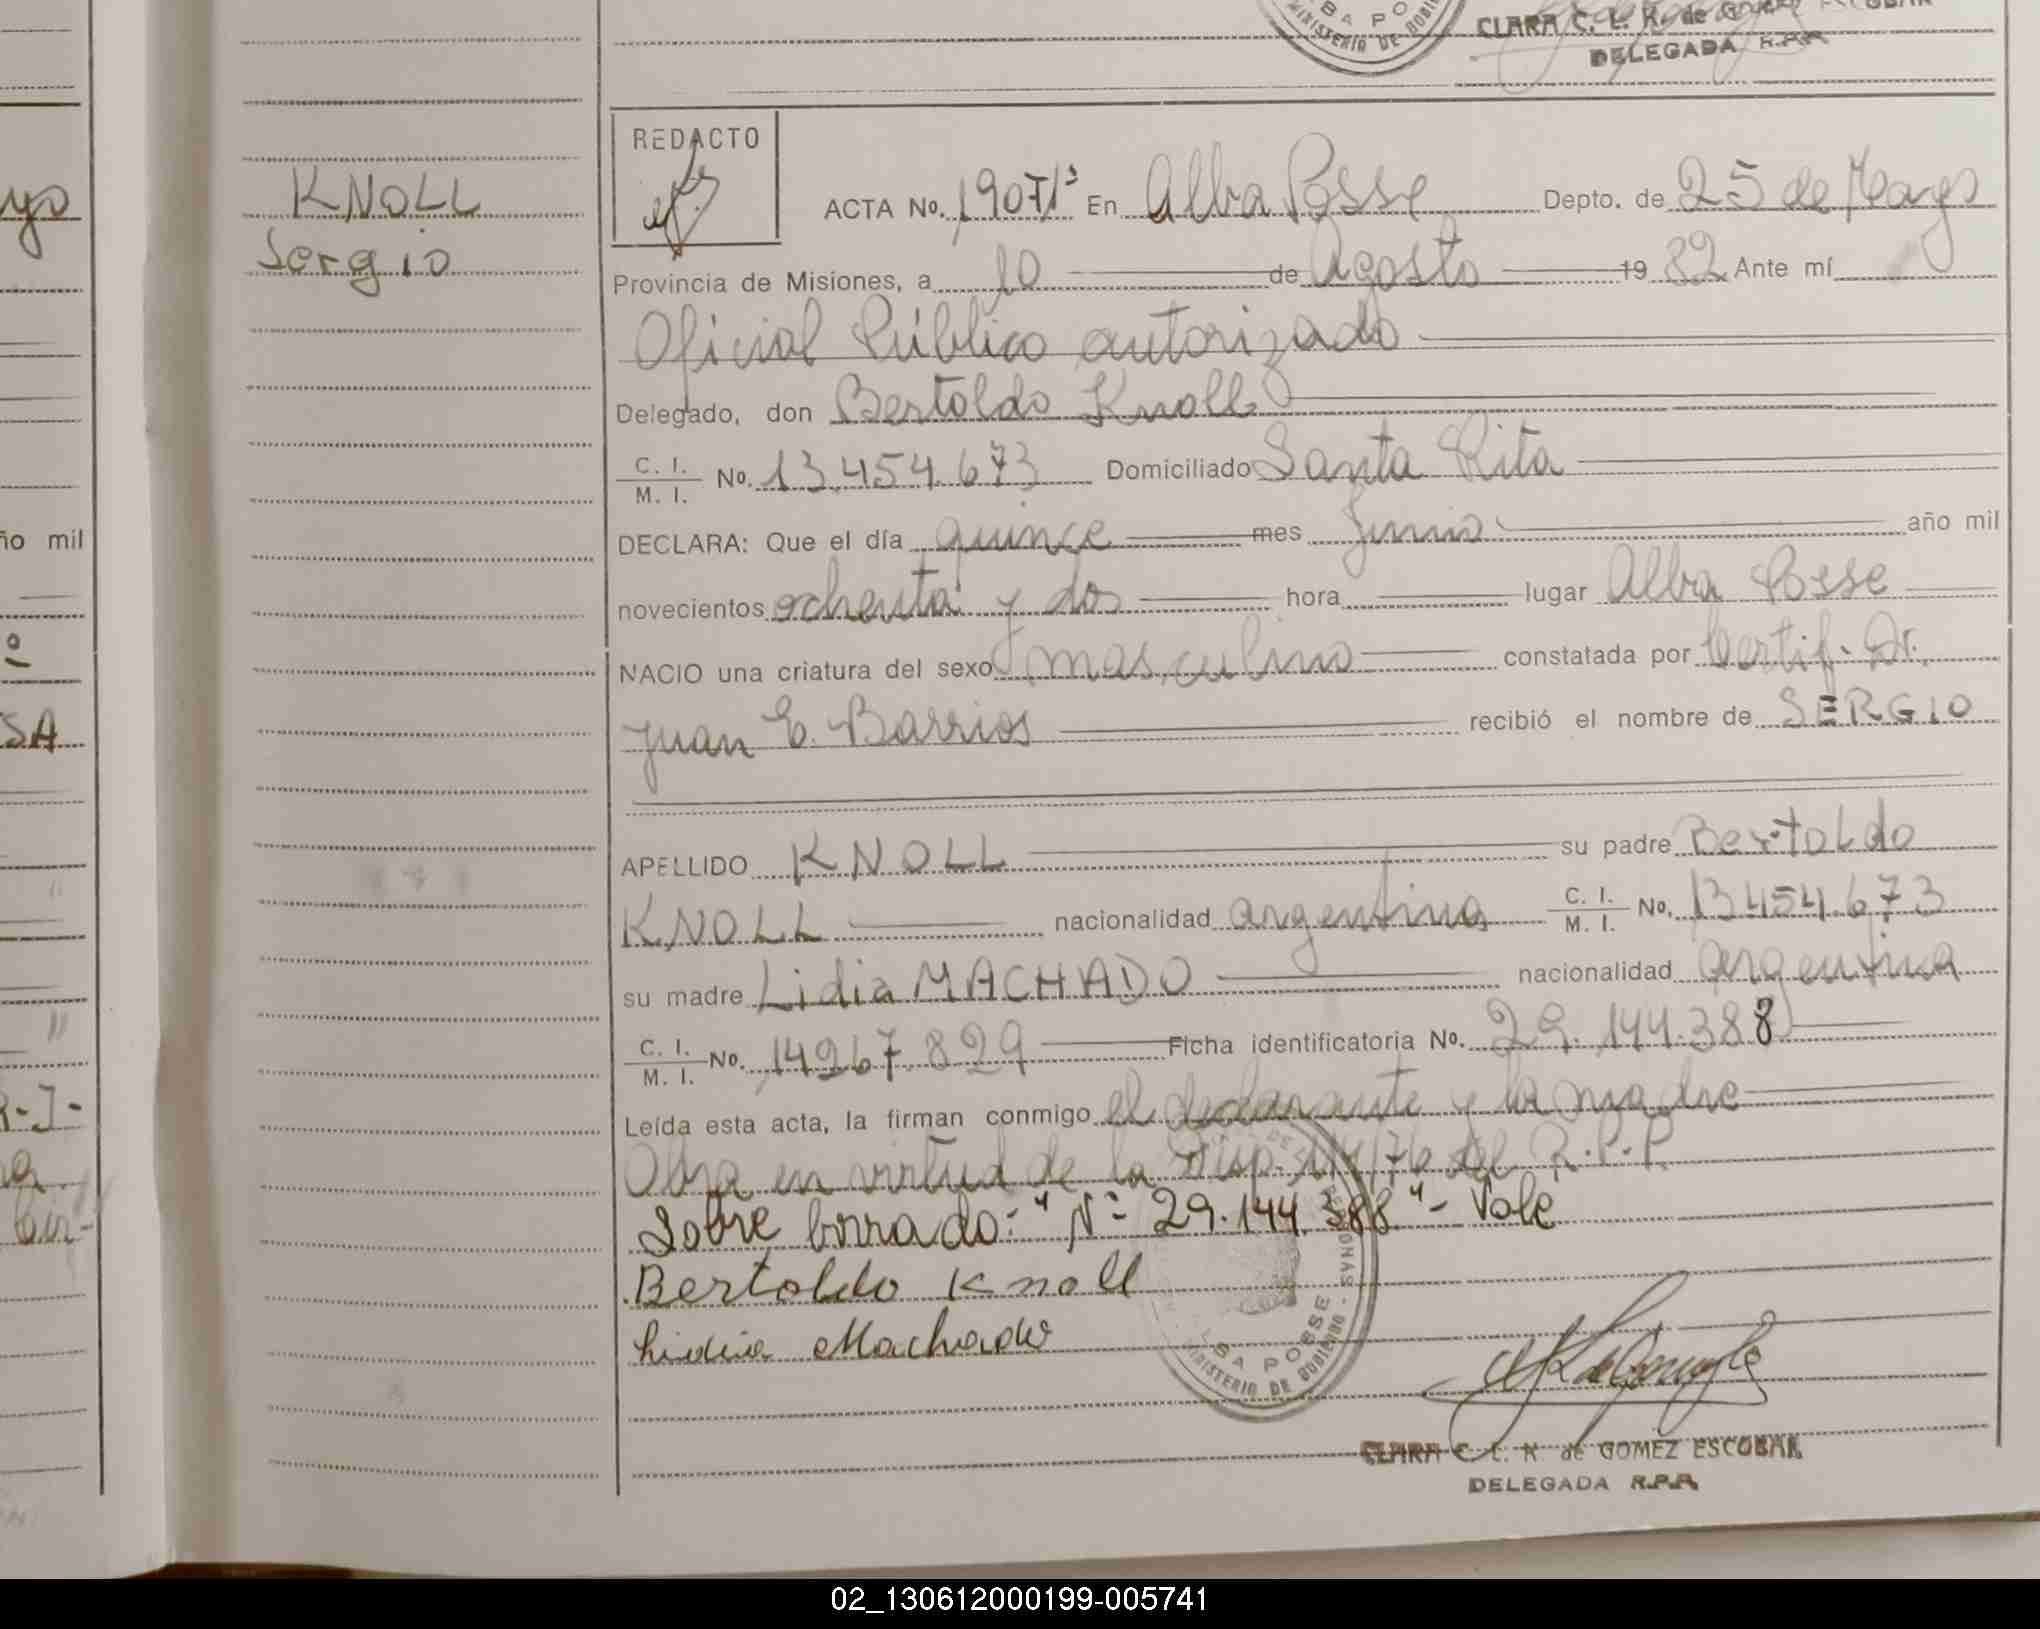 BA PO
MINISTERIO DE GOBIE
CLARA C. L. K. de ESCOBAR
DELEGADA R.P.P.
yo
ño mil
SA
KNOLL
Sergio
REDACTO
ACTA No. En Alba Posse Depto. de 25 de Mayo
Provincia de Misiones, a 10 de Agosto 19 82 Ante mí
Oficial Público autorizado
Delegado, don Bertoldo Knoll
C. I.
M. I. No. 13.454.673 Domiciliado Santa Rita
DECLARA: Que el día quince mes Junio año mil
novecientos ochenta y dos hora lugar Alba Posse
NACIO una criatura del sexo masculino constatada por Certif. Dr.
Juan E. Barrios recibió el nombre de SERGIO
APELLIDO KNOLL su padre Bertoldo
KNOLL nacionalidad argentina C. I.
M. I. No. 13454.673
su madre Lidia MACHADO nacionalidad argentina
C. I.
M. I. No. 14267.829 Ficha identificatoria No. 29.144.388
Leída esta acta, la firman conmigo el declarante y la madre
Obra en virtud de la Disp. /76 del R.P.P.
Sobre borrado: "Nº 29.144.388" - Vale
Bertoldo Knoll
Lidia Machado
ALBA POSSE
MINISTERIO DE GOBIERNO
CLARA C. L. K. de GOMEZ ESCOBAR
DELEGADA R.P.P.
02_130612000199-005741